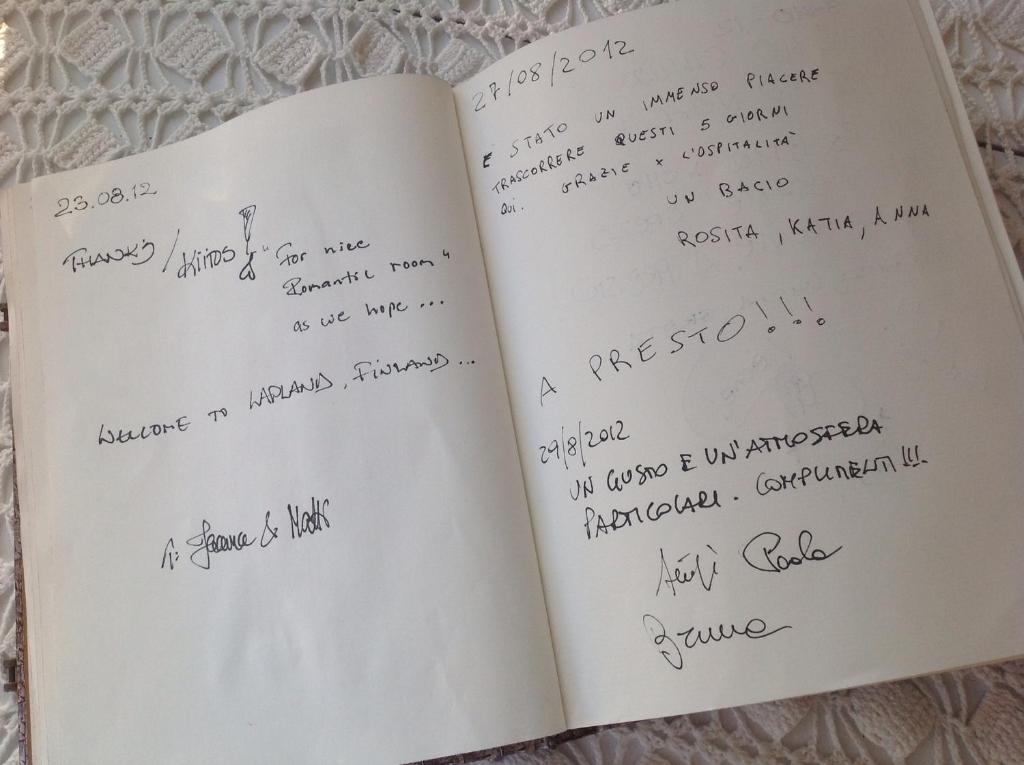 23.08.12
THANKS / KIITOS! "For nice
Romantic room"
as we hope ...
WELCOME TO LAPLAND, FINLAND ...
& 
27/08/2012
E' STATO UN IMMENSO PIACERE
TRASCORRERE QUESTI 5 GIORNI
QUI. GRAZIE x L'OSPITALITÀ
UN BACIO
ROSITA, KATIA, ANNA
A PRESTO!!!
29/8/2012
UN GUSTO E UN'ATMOSFERA
PARTICOLARI. COMPLIMENTI!!!
Paola
Bruna